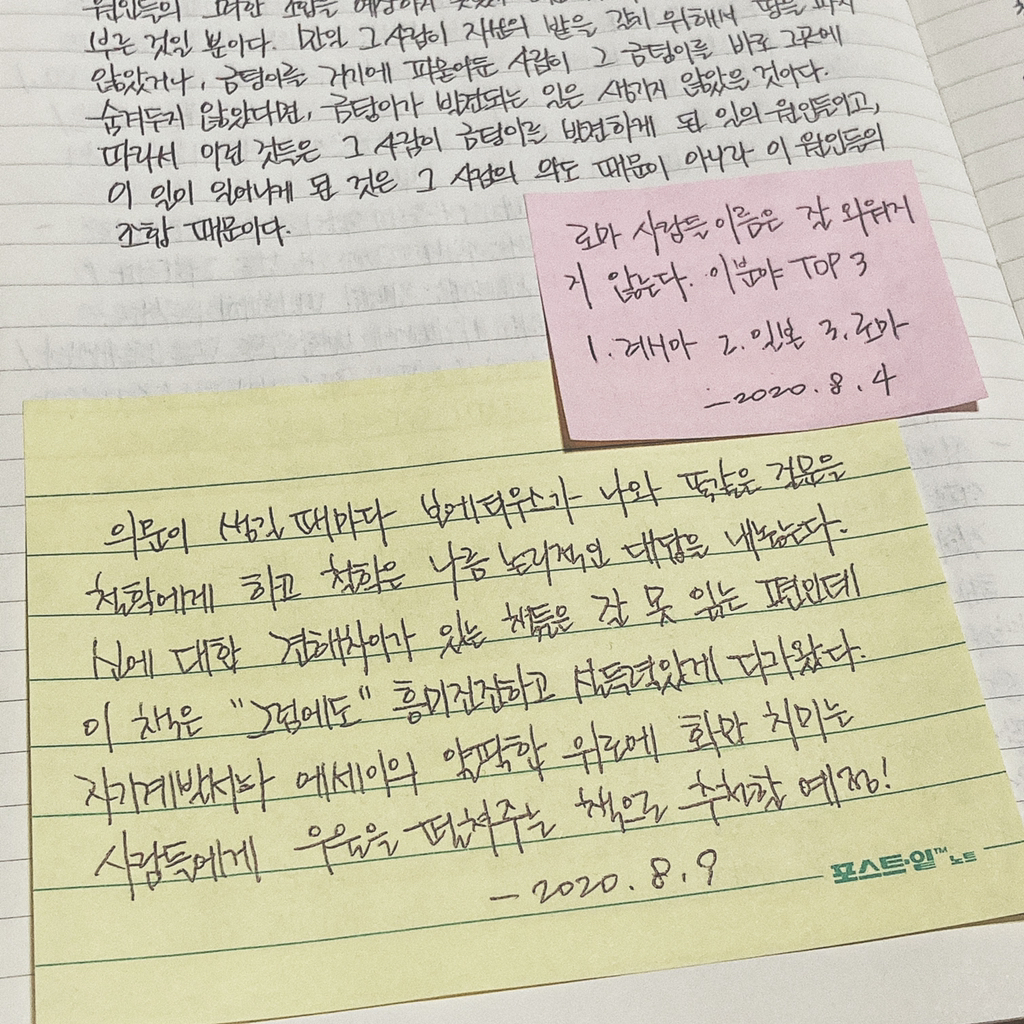 원인들의 그러한 조합을 예상하지 못했
부른 것일 뿐이다. 만일 그 사람이 자신의 밭을 갈기 위해서 땅을 파지
않았거나, 금덩이를 거기에 파묻어둔 사람이 그 금덩이를 바로 그곳에
숨겨두지 않았다면, 금덩이가 발견되는 일은 생기지 않았을 것이다.
따라서 이런 것들은 그 사람이 금덩이를 발견하게 된 일의 원인들이고,
이 일이 일어나게 된 것은 그 사람의 의도 때문이 아니라 이 원인들의
조합 때문이다.
로마 사람들 이름은 잘 외워지
지 않는다. 이분야 TOP 3
1. 러시아 2. 일본 3. 로마
-2020. 8. 4
의문이 생길 때마다 보에티우스가 나와 똑같은 질문을
철학에게 하고 철학은 나름 논리적인 대답을 내놓는다.
신에 대한 견해차이가 있는 책들은 잘 못 읽는 편인데
이 책은 "그럼에도" 흥미진진하고 설득력있게 다가왔다.
자기계발서나 에세이의 얄팍한 위로에 화만 치미는
사람들에게 우울을 떨쳐주는 책으로 추천할 예정!
-2020. 8. 9
포스트·잇™ 노트